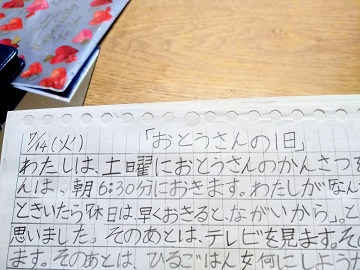 7/14(火) 「おとうさんの1日」
わたしは、土曜におとうさんのかんさつを
んは、朝6:30分におきます。わたしが「なん
ときいたら「休日は、早くおきると、ながいから」。と
思いました。そのあとは、テレビを見ます。そ
ます。そのあとは、ひるごはん何にしようか